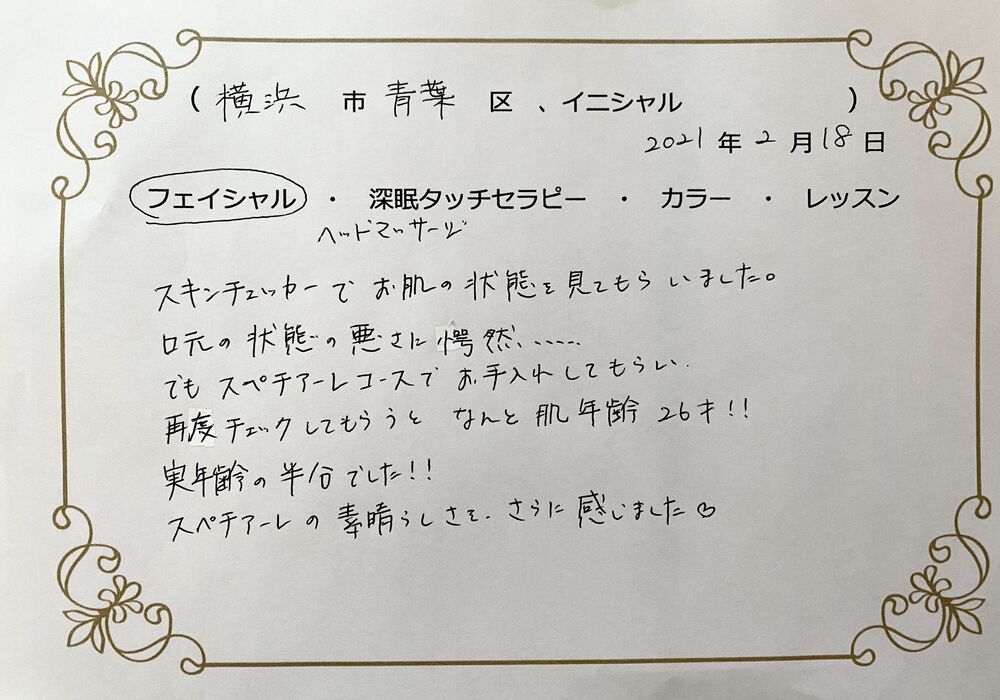 ( 横浜 市 青葉 区 、イニシャル )
2021 年 2 月 18 日
フェイシャル ・ 深眠タッチセラピー ・ カラー ・ レッスン
ヘッドマッサージ
スキンチェッカーで お肌の 状態を 見てもらいました。
口元の 状態の 悪さに 愕然、......
でも スペチアーレコースで お手入れしてもらい.
再度チェックしてもらうと なんと 肌年齢 26才!!
実年齢の 半分でした!!
スペチアーレの 素晴らしさを、さらに 感じました♡